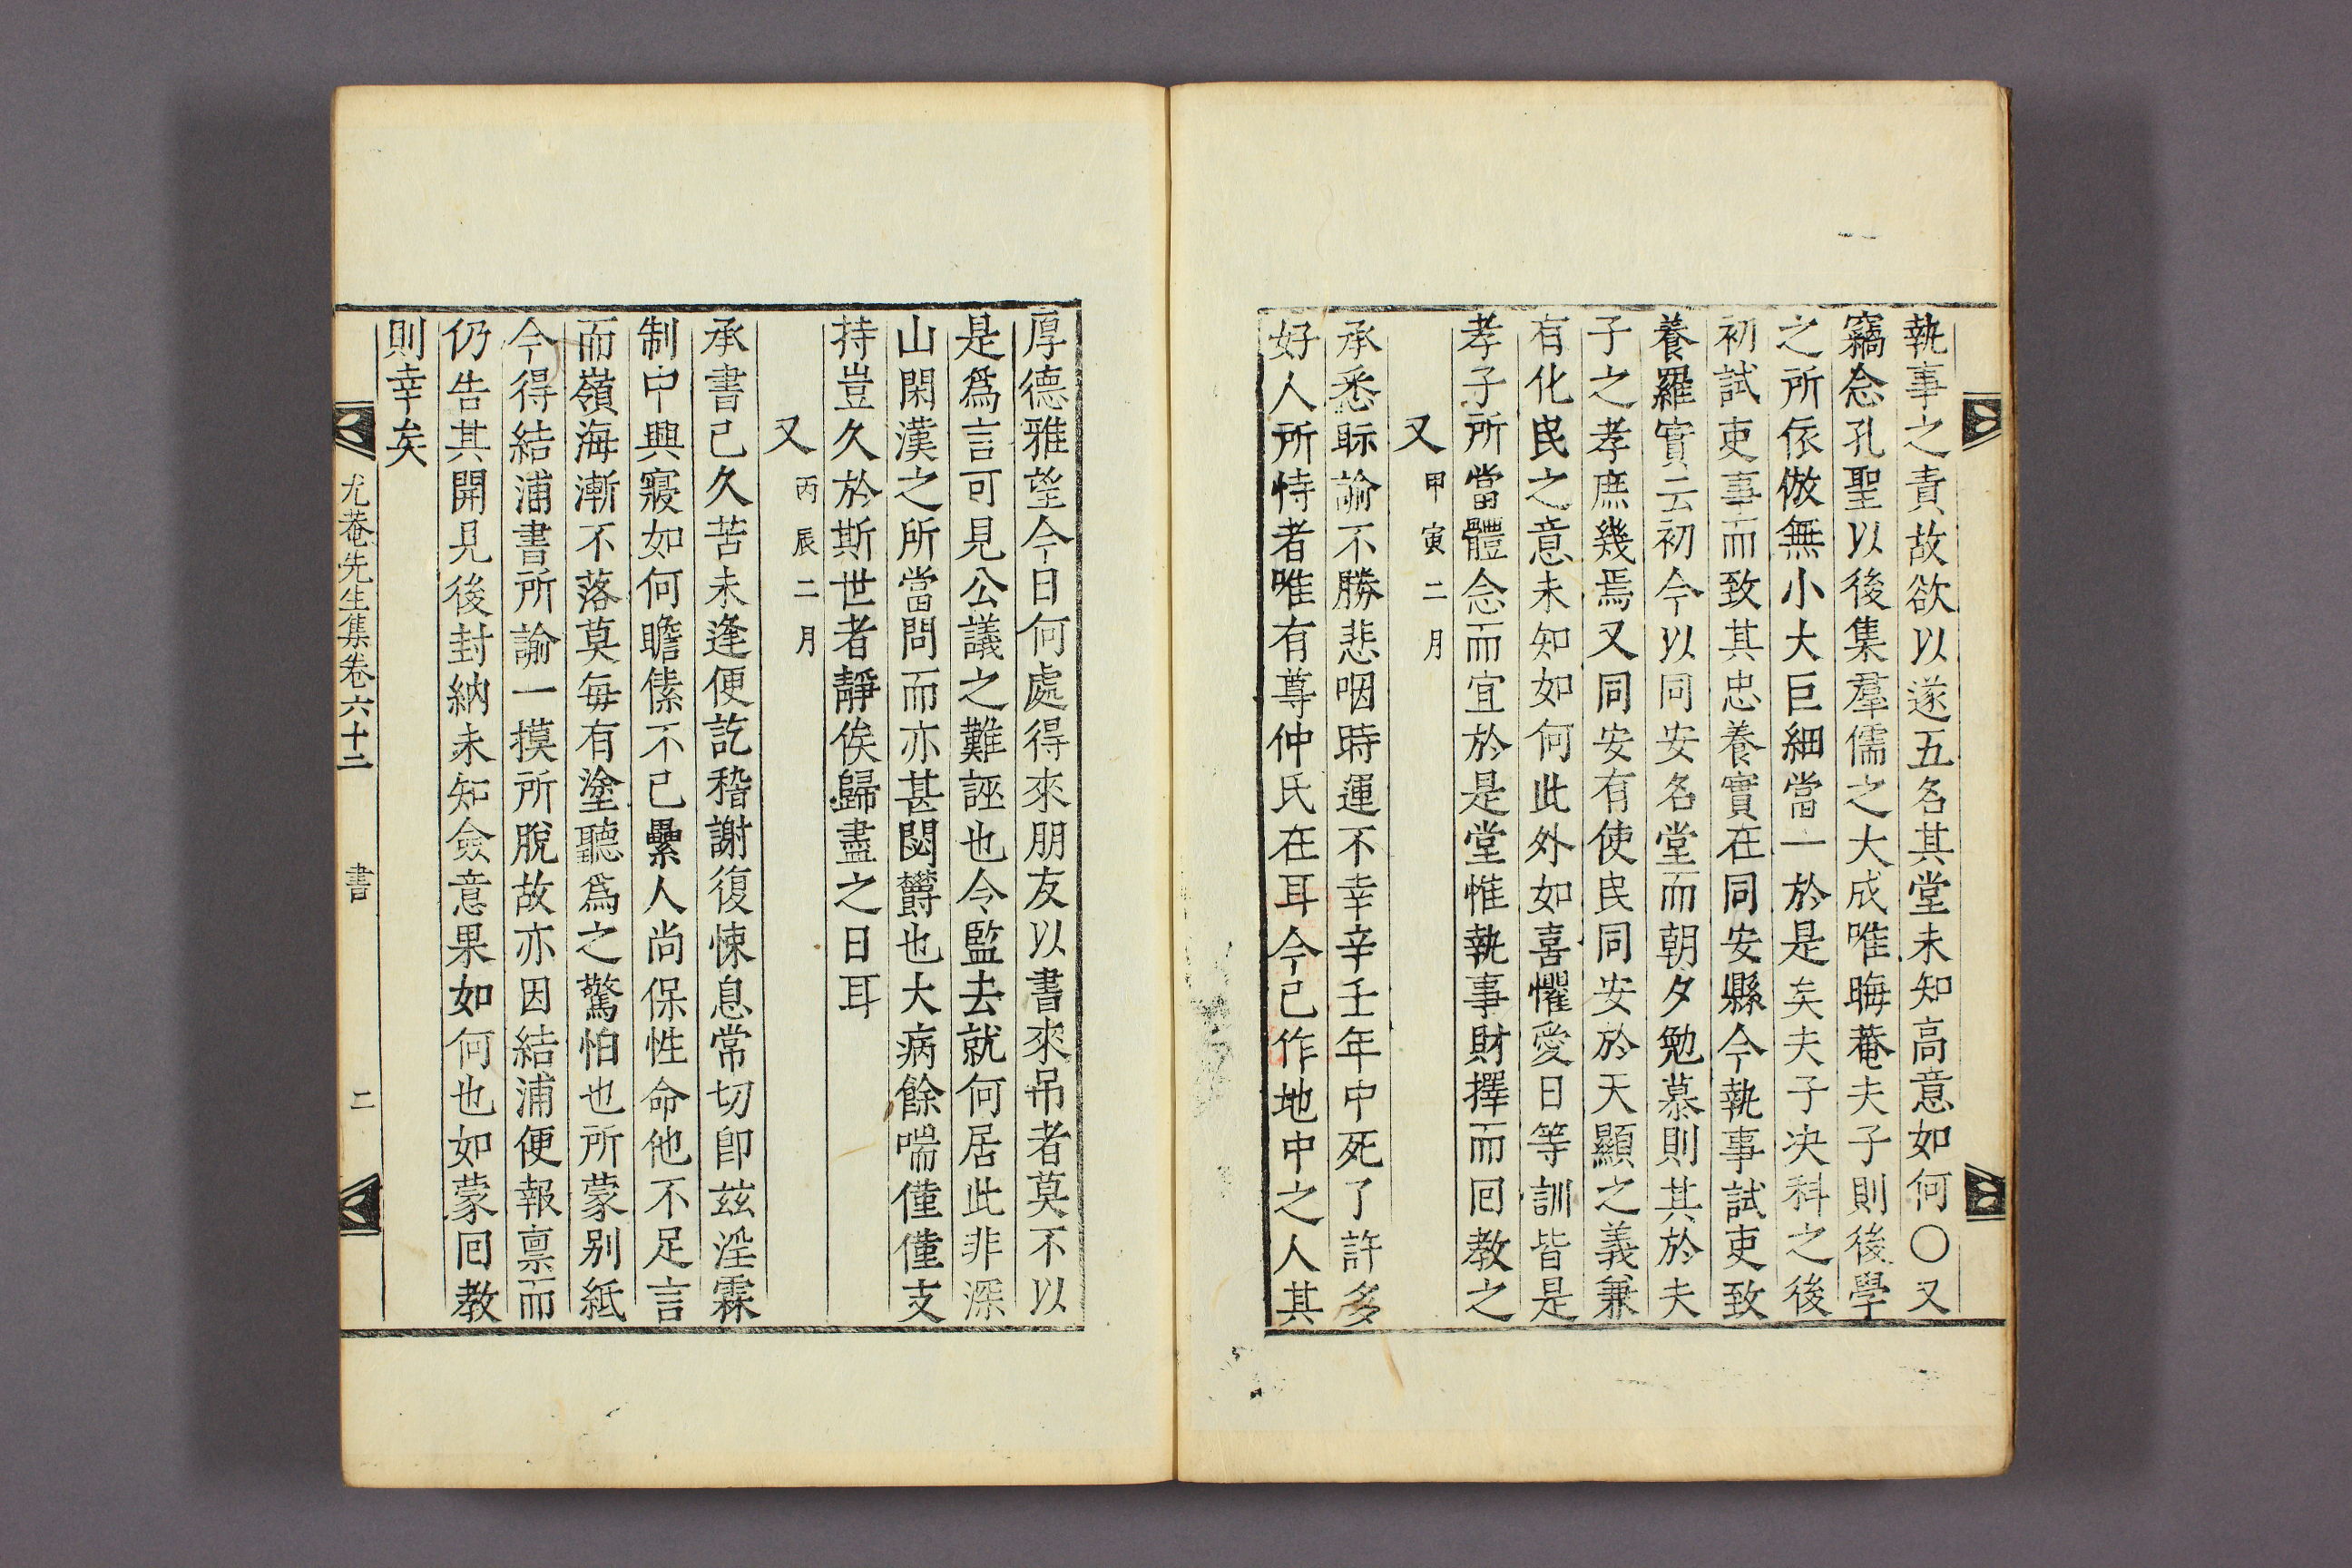 執事之責故欲以遂五名其堂未知高意如何○又
竊念孔聖以後集羣儒之大成唯晦菴夫子則後學
之所依倣無小大巨細當一於是矣夫子决科之後
初試吏事而致其忠養實在同安縣今執事試吏致
養羅實云初今以同安名堂而朝夕勉慕則其於夫
子之孝庶幾焉又同安有使民同安於天顯之義兼
有化民之意未知如何此外如喜懼愛日等訓皆是
孝子所當體念而宜於是堂惟執事財擇而回教之
又甲寅二月
承悉眎諭不勝悲咽時運不幸辛壬年中死了許多
好人所恃者唯有尊仲氏在耳今已作地中之人其
厚德雅望今日何處得來朋友以書來吊者莫不以
是爲言可見公議之難誣也令監去就何居此非深
山閑漢之所當問而亦甚閟欝也大病餘喘僅僅支
持豈久於斯世者靜俟歸盡之日耳
又丙辰二月
承書已久苦未逢便訖稽謝復悚息常切卽玆淫霖
制中興寢如何瞻傃不已纍人尚保性命他不足言
而嶺海漸不落莫每有塗聽爲之驚怕也所蒙别紙
今得結浦書所諭一摸所脫故亦因結浦便報禀而
仍告其開見後封納未知僉意果如何也如蒙回教
則幸矣
尤菴先生集卷六十二 書 二